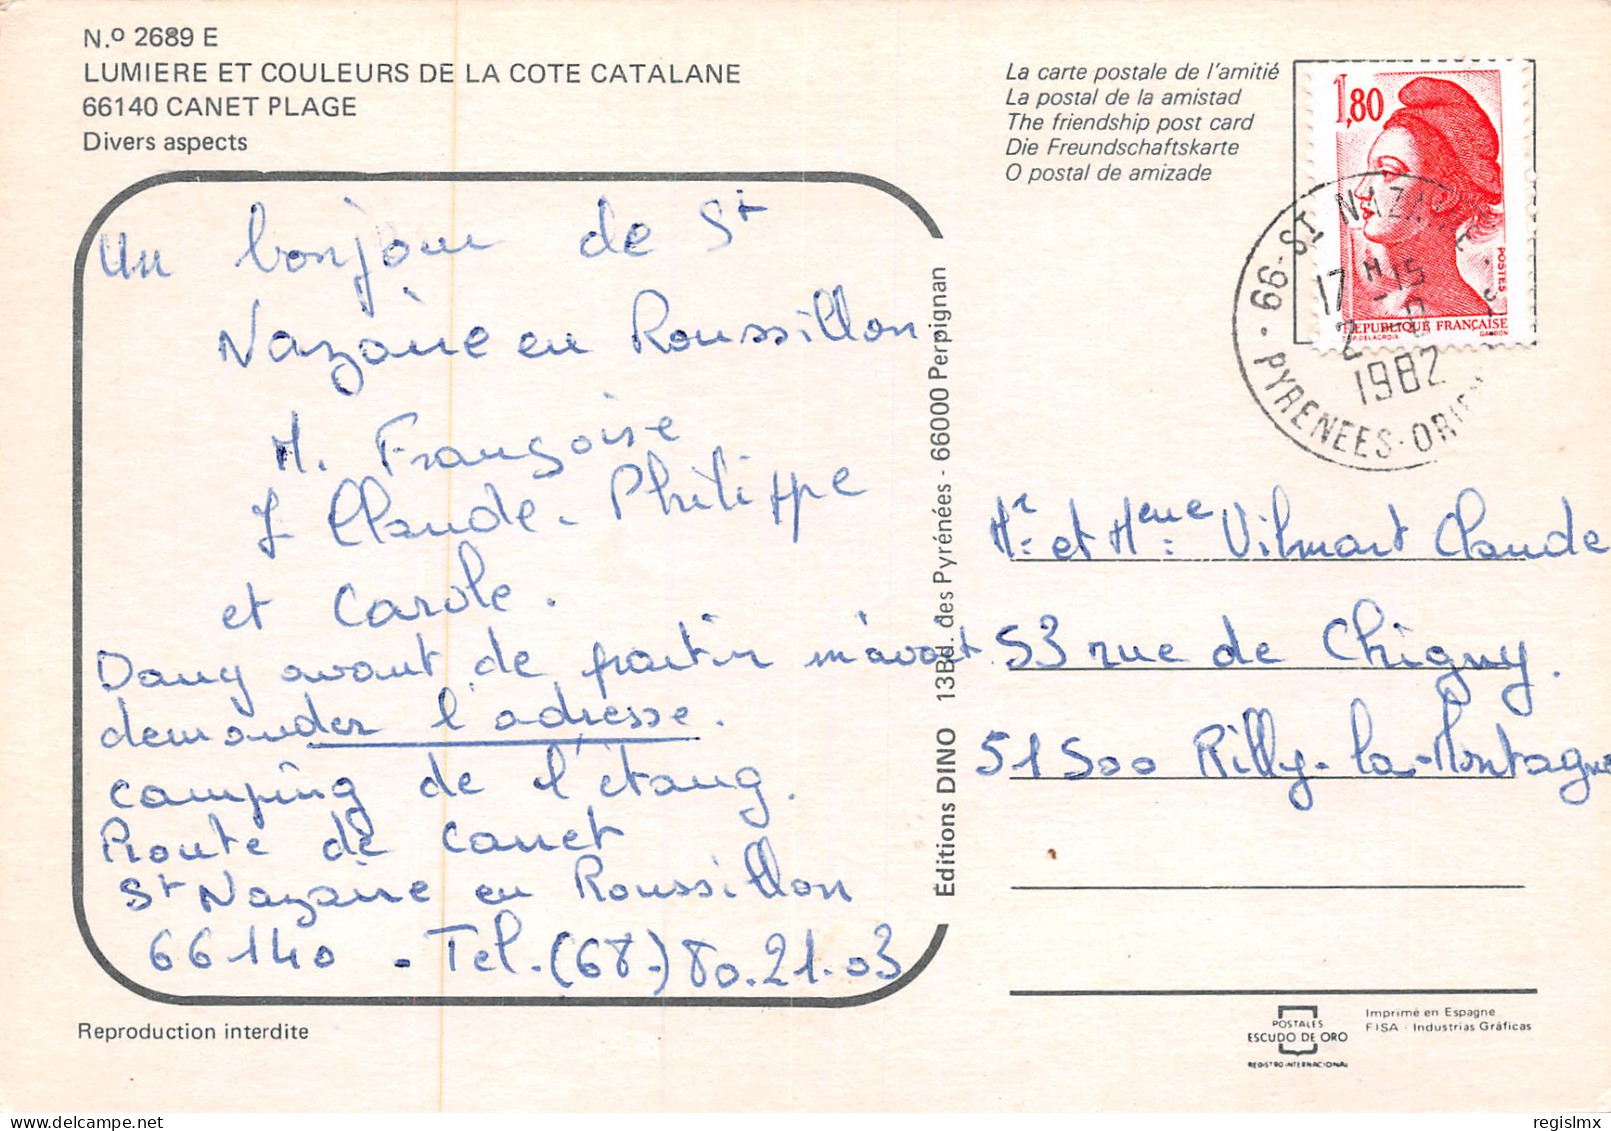 N.º 2689 E
LUMIERE ET COULEURS DE LA COTE CATALANE
66140 CANET PLAGE
Divers aspects
Un bonjour de St
Nazaire en Roussillon
M. Françoise
J Claude. Philippe
et Carole.
Dany avant de partir m'avait
demander l'adresse.
camping de l'étang.
Route de Canet
St Nazaire en Roussillon
66140 . Tel. (68.) 80.21.03
Reproduction interdite
Éditions DINO 13Bd. des Pyrénées - 66000 Perpignan
La carte postale de l'amitié
La postal de la amistad
The friendship post card
Die Freundschaftskarte
O postal de amizade
1,80
POSTES
REPUBLIQUE FRANÇAISE
DELACROIX GANDON
66-ST NAZAIRE
17 H 15
2
1982
PYRENEES-ORIEN
Mr et Meme Vilmart Claude
53 rue de Chigny.
51500 Rilly-la-Montagne
POSTALES
ESCUDO DE ORO
REGISTRO INTERNACIONAL
Imprimé en Espagne
FISA - Industrias Gráficas
regislmx